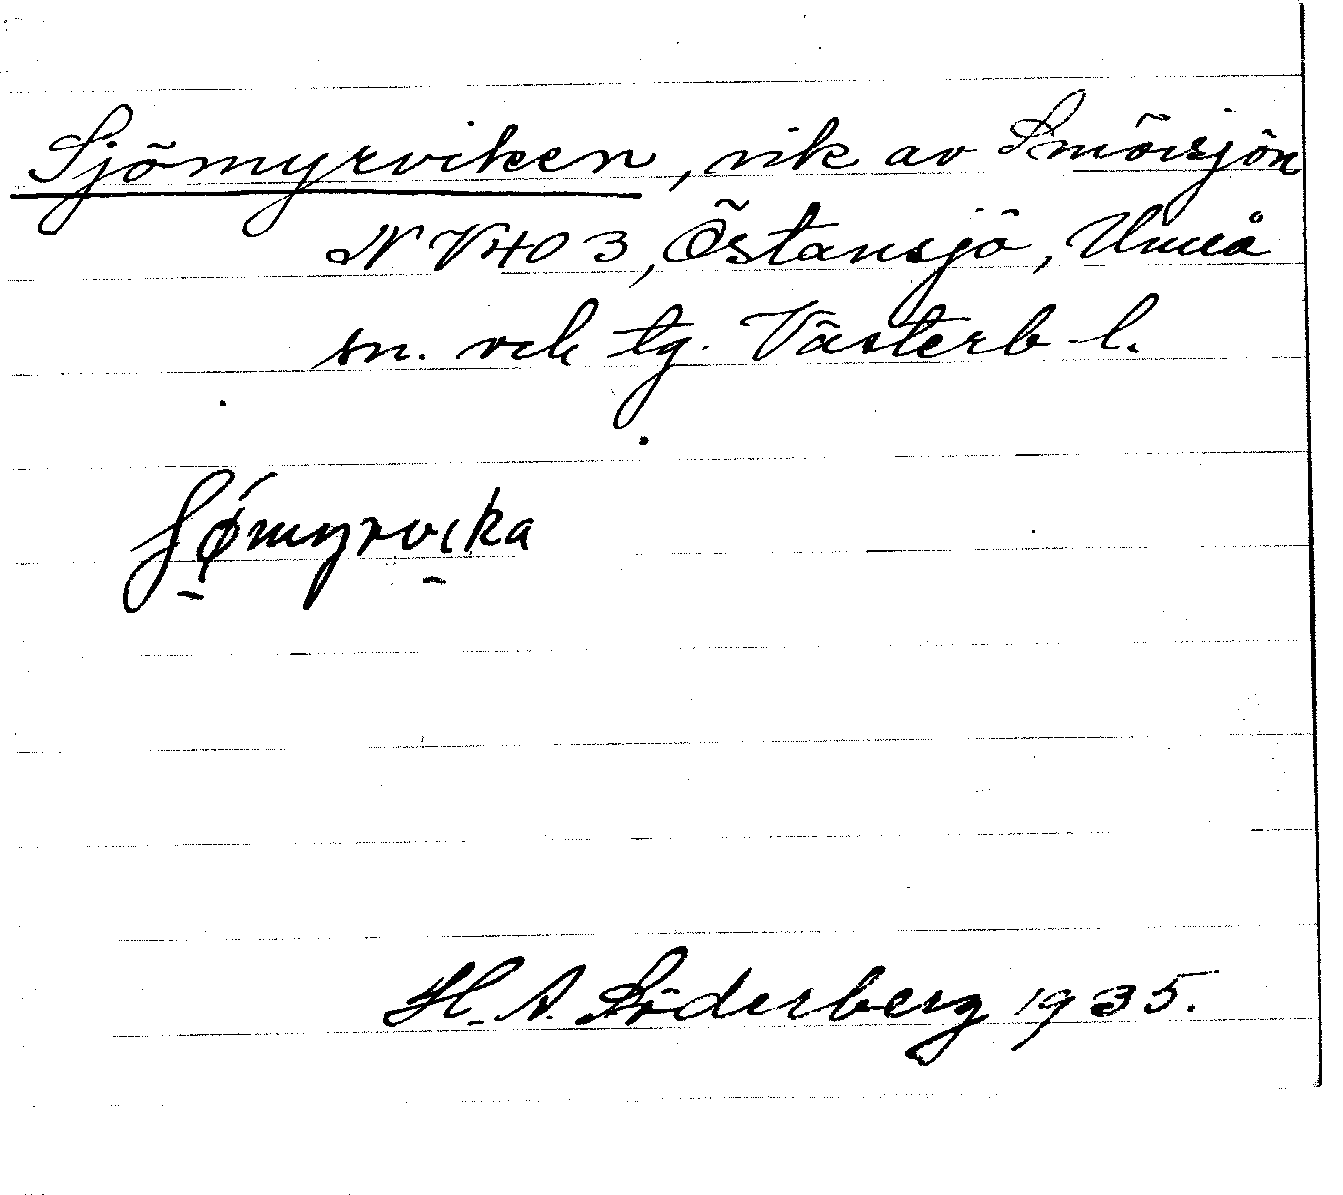 Sjömyrviken, vik av Smörsjön
N V 40 3, Östansjö, Umeå
sn. och tg. Västerb l.
Sømyrvika
H. A. Söderberg 1935.